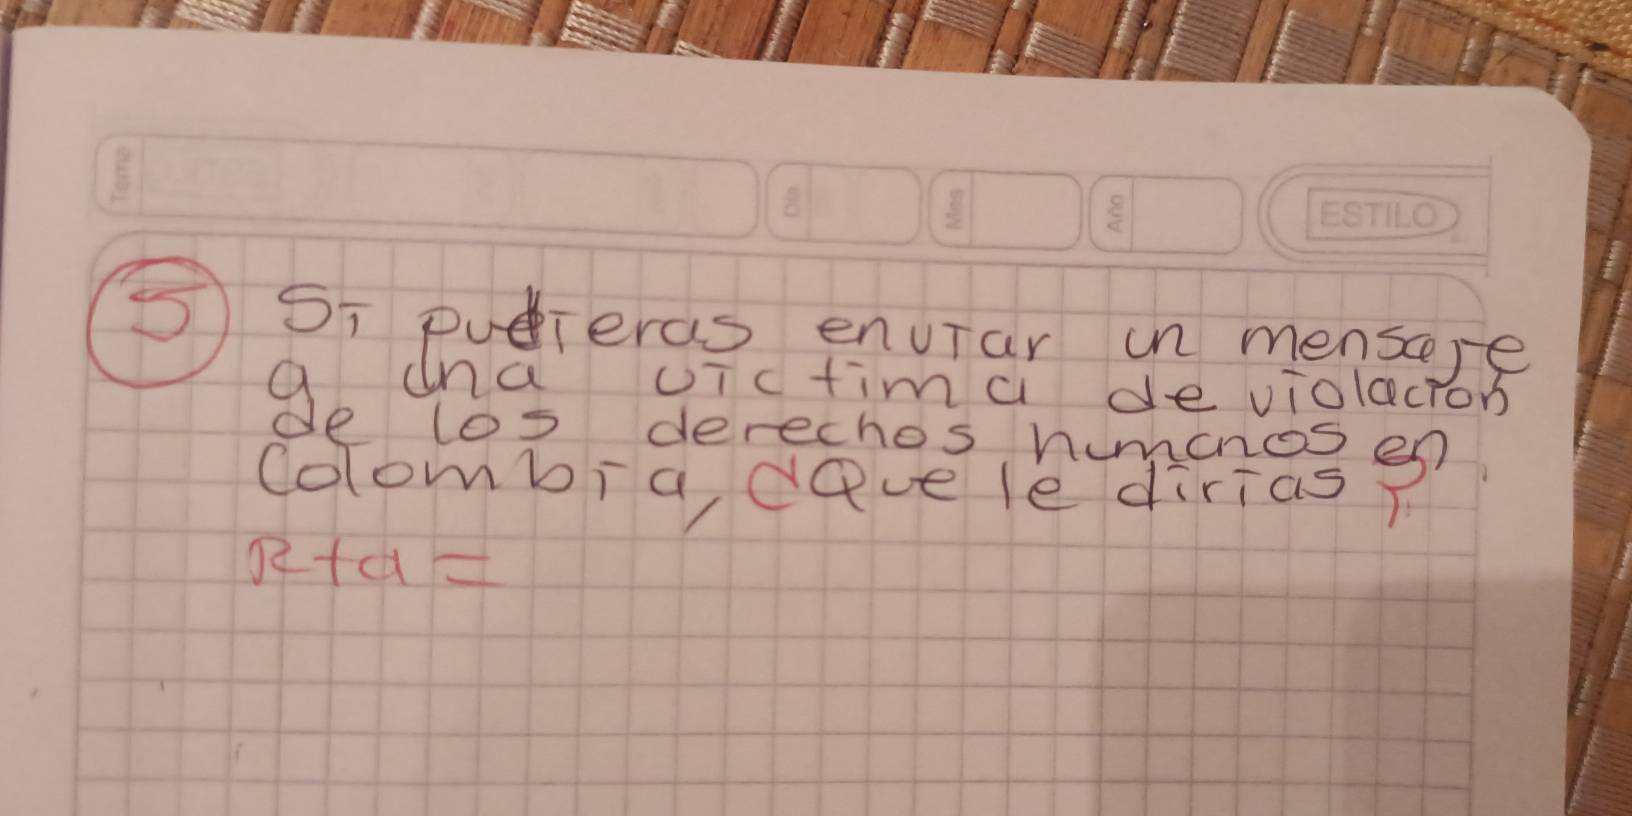 Tema
Dia
Mes
Año
ESTILO
5 Si pudieras enviar un mensaje
a una victima de violacion
de los derechos humanos en
Colombia, ¿Que le dirias?
Rta=